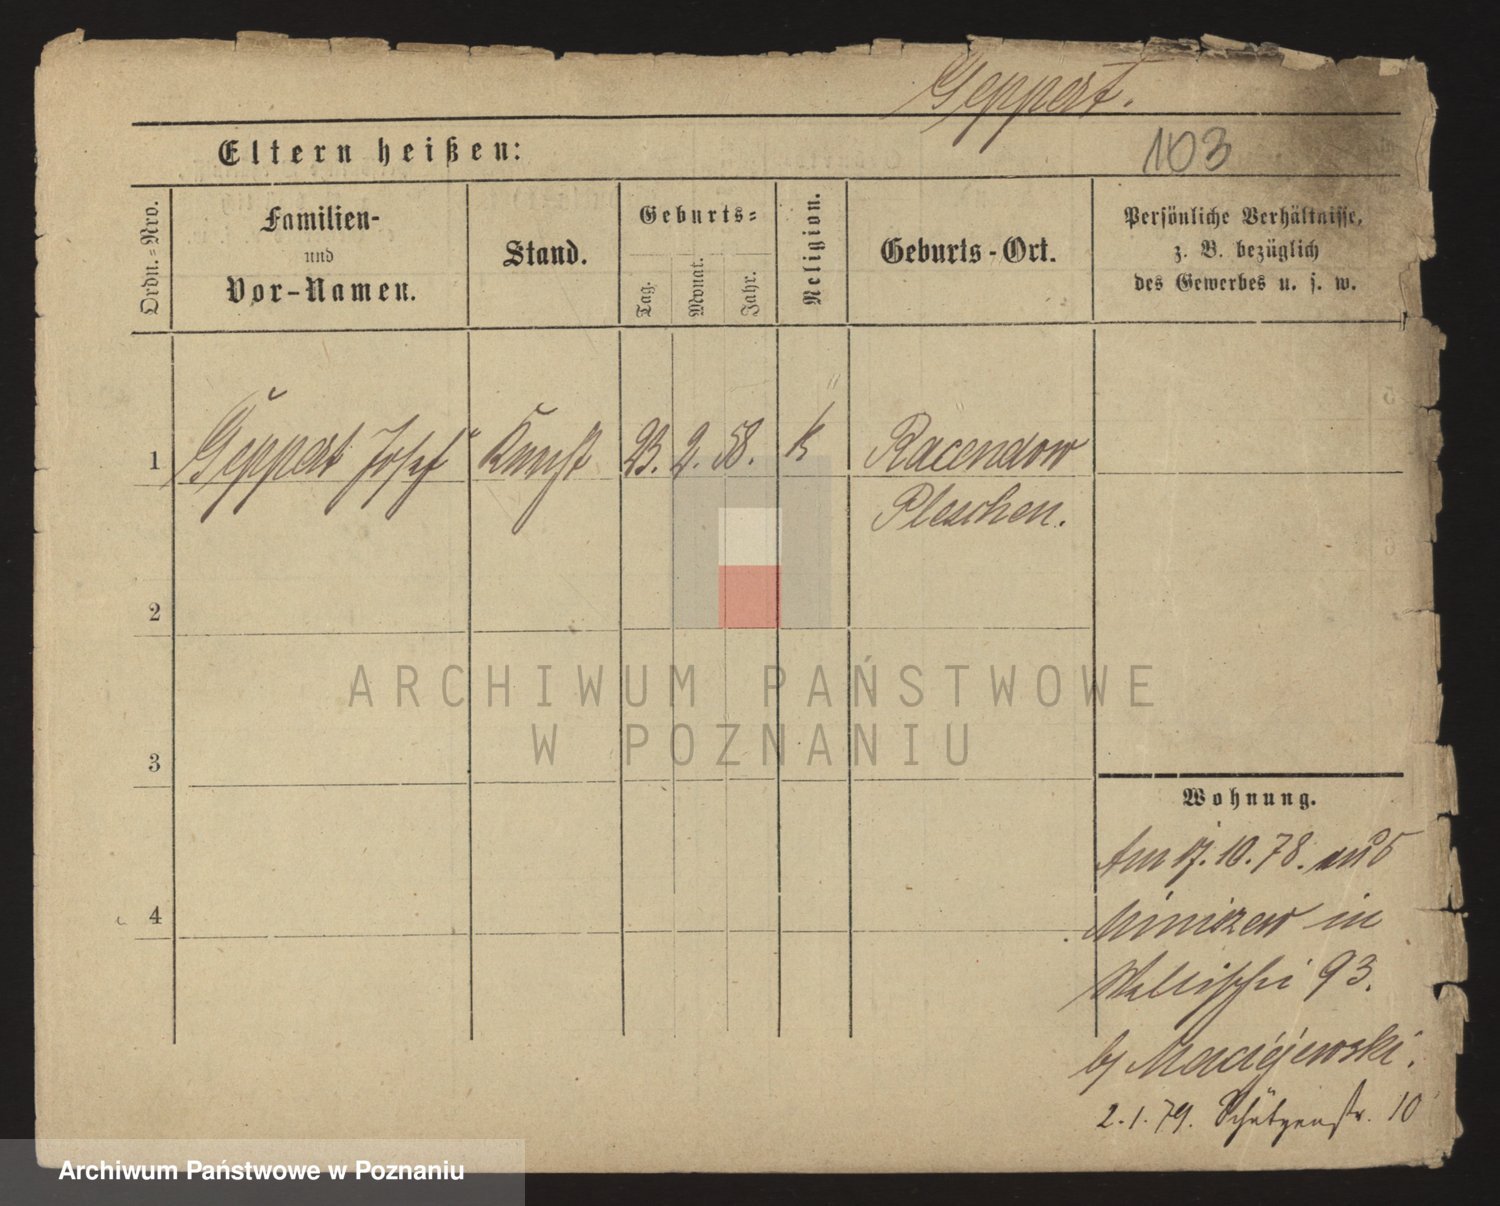 Geppert.
103
Eltern heißen:
Ordn.-Nro.
Familien- und Vor-Namen.
Stand.
Geburts-
Tag.
Monat.
Jahr.
Religion.
Geburts-Ort.
Persönliche Verhältnisse,
z. B. bezüglich
des Gewerbes u. s. w.
1 Geppert Josef Knecht 23. 2. 58. k Racendow
Pleschen.
2
3
4
ARCHIWUM PAŃSTWOWE
W POZNANIU
Wohnung.
Am 17. 10. 78. aus
Miniszew in
Wallischei 93.
by Maciejewski.
2. 1. 79. Schützenstr. 10
Archiwum Państwowe w Poznaniu